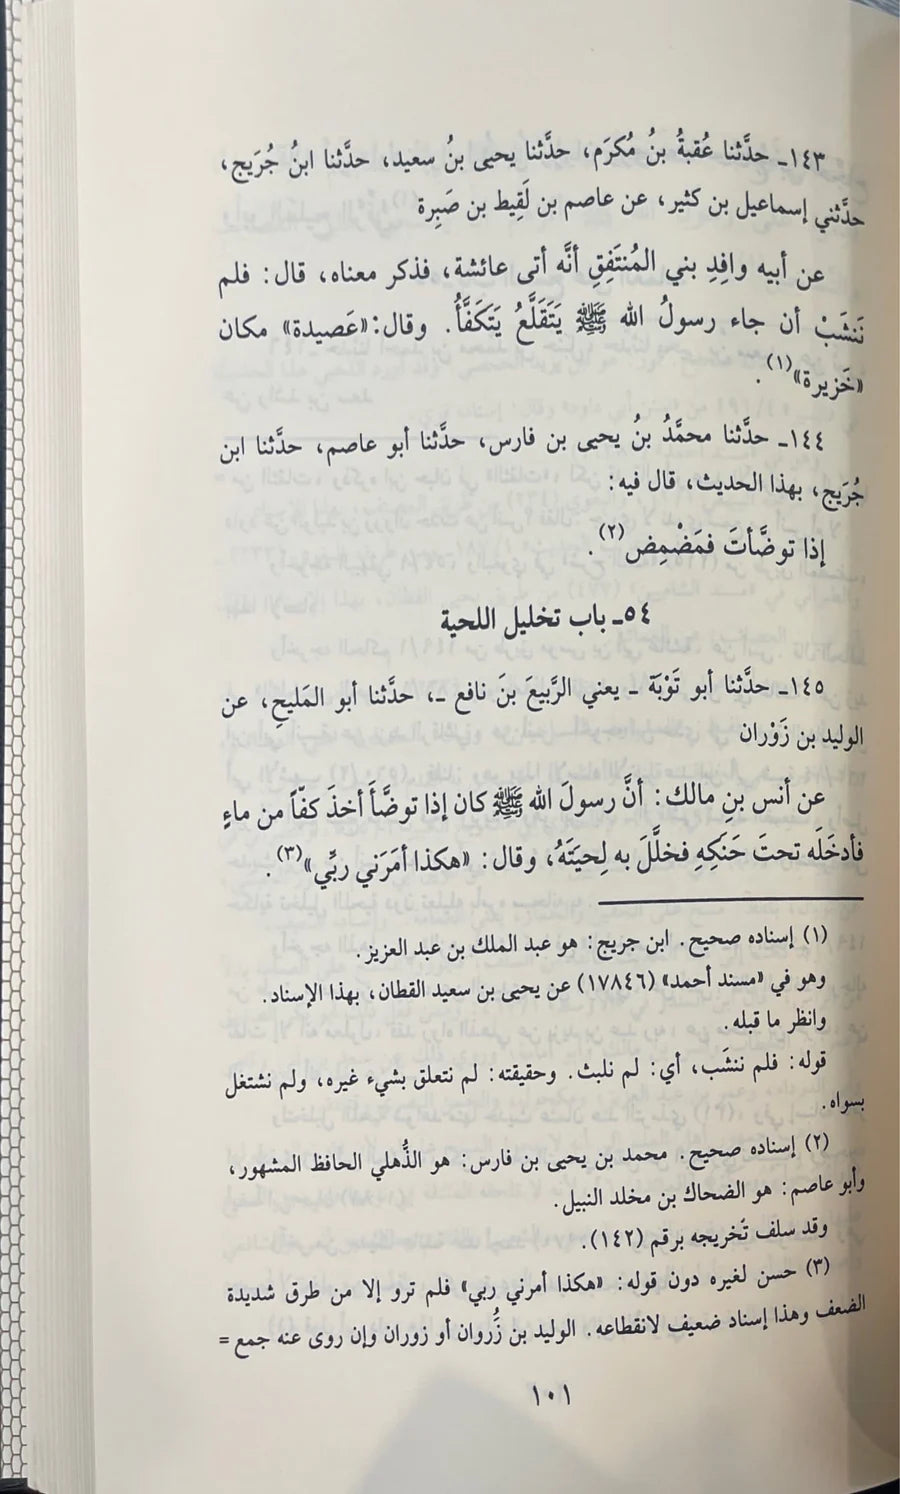 ١٤٣ـ حدَّثنا عُقبةُ بنُ مُكرَم، حدَّثنا يحيى بنُ سعيد، حدَّثنا ابنُ جُرَيج،
حدَّثني إسماعيل بن كثير، عن عاصم بن لَقِيط بن صَبِرة
عن أبيه وافِدِ بني المُنتَفِقِ أنَّه أتى عائشة، فذكر معناه، قال: فلم
نَنشَبْ أن جاء رسولُ الله ﷺ يَتَقَلَّعُ يَتكَفَّأُ. وقال: «عَصيدة» مكان
«خَزيرة»(١).
١٤٤ـ حدَّثنا محمَّدُ بنُ يحيى بن فارس، حدَّثنا أبو عاصم، حدَّثنا ابن
جُرَيج، بهذا الحديث، قال فيه:
إذا توضَّأتَ فمَضْمِض(٢).
٥٤ـ باب تخليل اللحية
١٤٥ـ حدَّثنا أبو تَوْبَة ـ يعني الرَّبيعَ بنَ نافع ـ، حدَّثنا أبو المَليحِ، عن
الوليد بن زَوْران
عن أنس بنِ مالك: أنَّ رسولَ الله ﷺ كان إذا توضَّأَ أخذَ كفّاً من ماءٍ
فأدخَلَه تحتَ حَنَكِهِ فخلَّلَ به لِحيَتَهُ، وقال: «هكذا أمَرَني ربِّي»(٣).
(١) إسناده صحيح. ابن جريج: هو عبد الملك بن عبد العزيز.
وهو في «مسند أحمد» (١٧٨٤٦) عن يحيى بن سعيد القطان، بهذا الإسناد.
وانظر ما قبله.
قوله: فلم ننشَب، أي: لم نلبث. وحقيقته: لم نتعلق بشيء غيره، ولم نشتغل
بسواه.
(٢) إسناده صحيح. محمد بن يحيى بن فارس: هو الذُّهلي الحافظ المشهور،
وأبو عاصم: هو الضحاك بن مخلد النبيل.
وقد سلف تَخريجه برقم (١٤٢).
(٣) حسن لغيره دون قوله: «هكذا أمرني ربي» فلم ترو إلا من طرق شديدة
الضعف وهذا إسناد ضعيف لانقطاعه. الوليد بن زَُروان أو زوران وإن روى عنه جمع =
١٠١